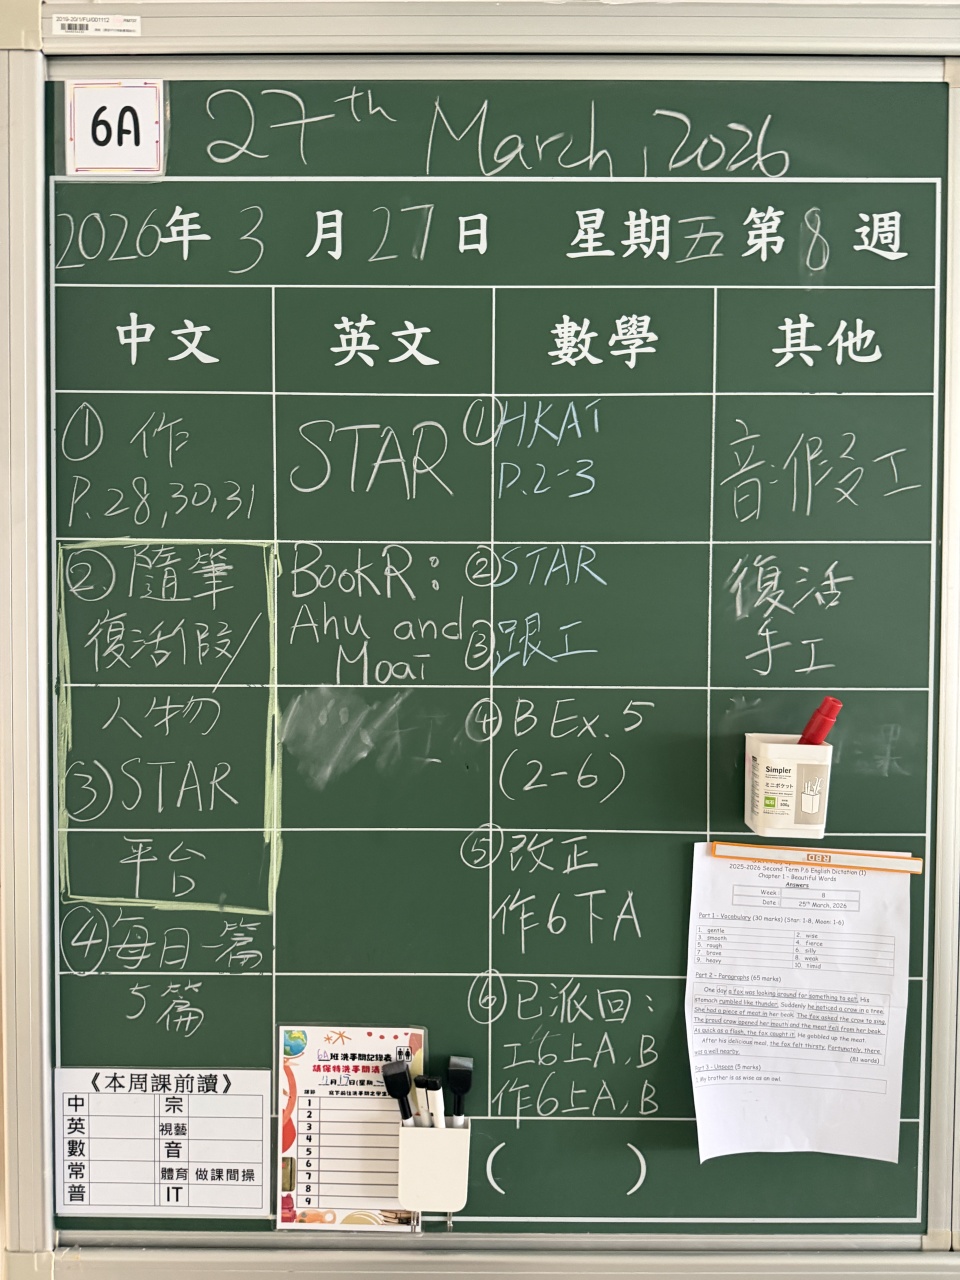 2019-20/1/FU/001112
6A
27th March, 2026
2026年3月27日 星期五第8週
中文 英文 數學 其他
① 作
P.28,30,31
②隨筆
復活假/
人物
③STAR
平台
④每日一篇
5篇
STAR
BookR:
Ahu and
Moai
①HKAT
P.2-3
②STAR
③跟工
④B Ex.5
(2-6)
⑤改正
作6下A
⑥已派回:
工6上A,B
作6上A,B
( )
音:假工
復活
手工
Simpler
ミニポケット
2025-2026 Second Term P.6 English Dictation (1)
Chapter 1 - Beautiful Words
Answers
Week : 8
Date : 25th March, 2026
Part 1 - Vocabulary (30 marks) (Star: 1-8, Moon: 1-6)
1. gentle 2. wise
3. smooth 4. fierce
5. rough 6. silly
7. brave 8. weak
9. heavy 10. timid
Part 2 - Paragraphs (65 marks)
One day a fox was looking around for something to eat. His
stomach rumbled like thunder. Suddenly he noticed a crow in a tree.
She had a piece of meat in her beak. The fox asked the crow to sing.
The proud crow opened her mouth and the meat fell from her beak.
As quick as a flash, the fox caught it. He gobbled up the meat.
After his delicious meal, the fox felt thirsty. Fortunately, there
was a well nearby.
(81 words)
Part 3 - Unseen (5 marks)
1. My brother is as wise as an owl.
《本周課前讀》
中 宗
英 視藝
數 音
常 體育 做課間操
普 IT
6A班洗手間記錄表
請保持洗手間清
1
2
3
4
5
6
7
8
9